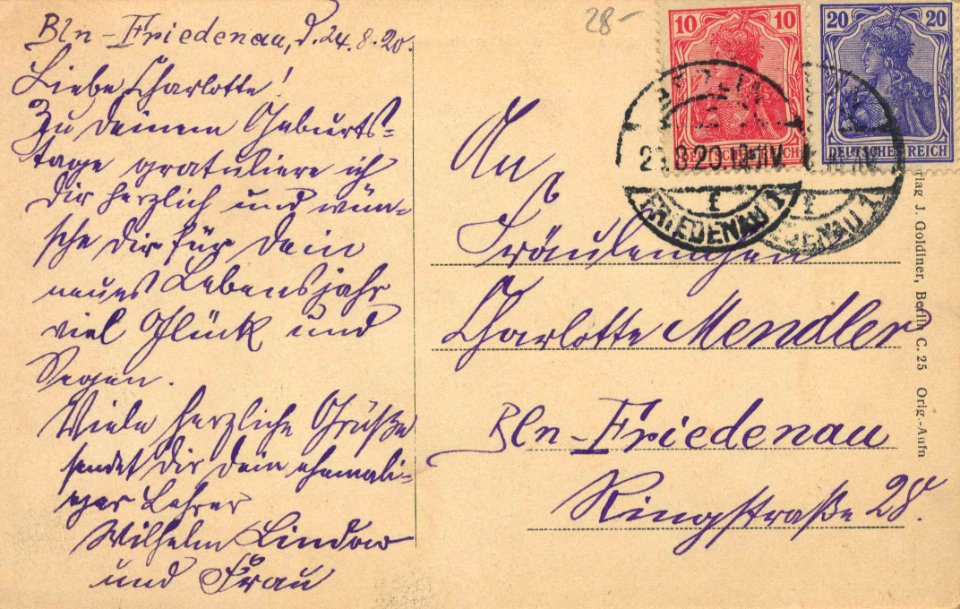 Bln-Friedenau, d. 24.8.20.
Liebe Charlotte!
Zu Deinem Geburts-
tage gratuliere ich
Dir herzlich und wün-
sche Dir für Dein
neues Lebensjahr
viel Glück und
Segen.
Viele herzliche Grüße
sendet Dir Dein ehemali-
ger Lehrer
Wilhelm Lindow
und Frau
28-
10 10
DEUTSCHES REICH
20 20
DEUTSCHES REICH
BERLIN
8.20.
FRIEDENAU 1
An
Fräulein
Charlotte Mendler
Bln-Friedenau
Ringstraße 28.
Verlag J. Goldiner, Berlin C. 25 Orig.-Aufn